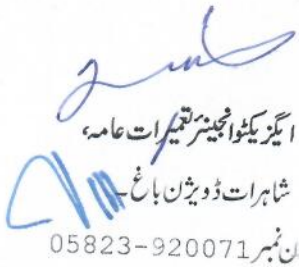 ایگزیکٹو انجینئر تعمیرات عامہ،
شاہرات ڈویژن باغ۔
ن نمبر 05823-920071